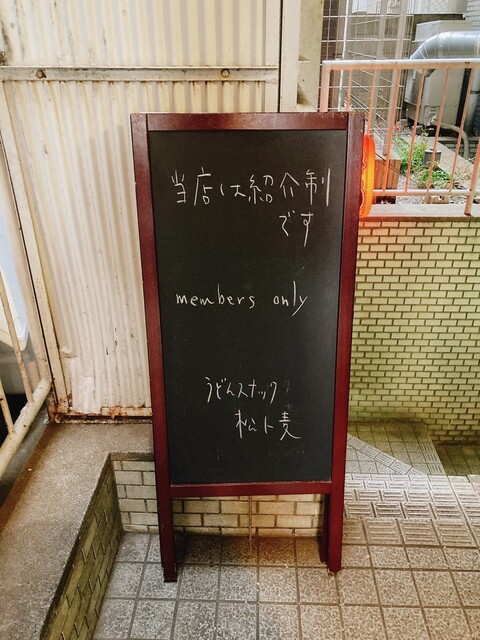 当店は紹介制
です
members only
うどんスナック
松ト麦